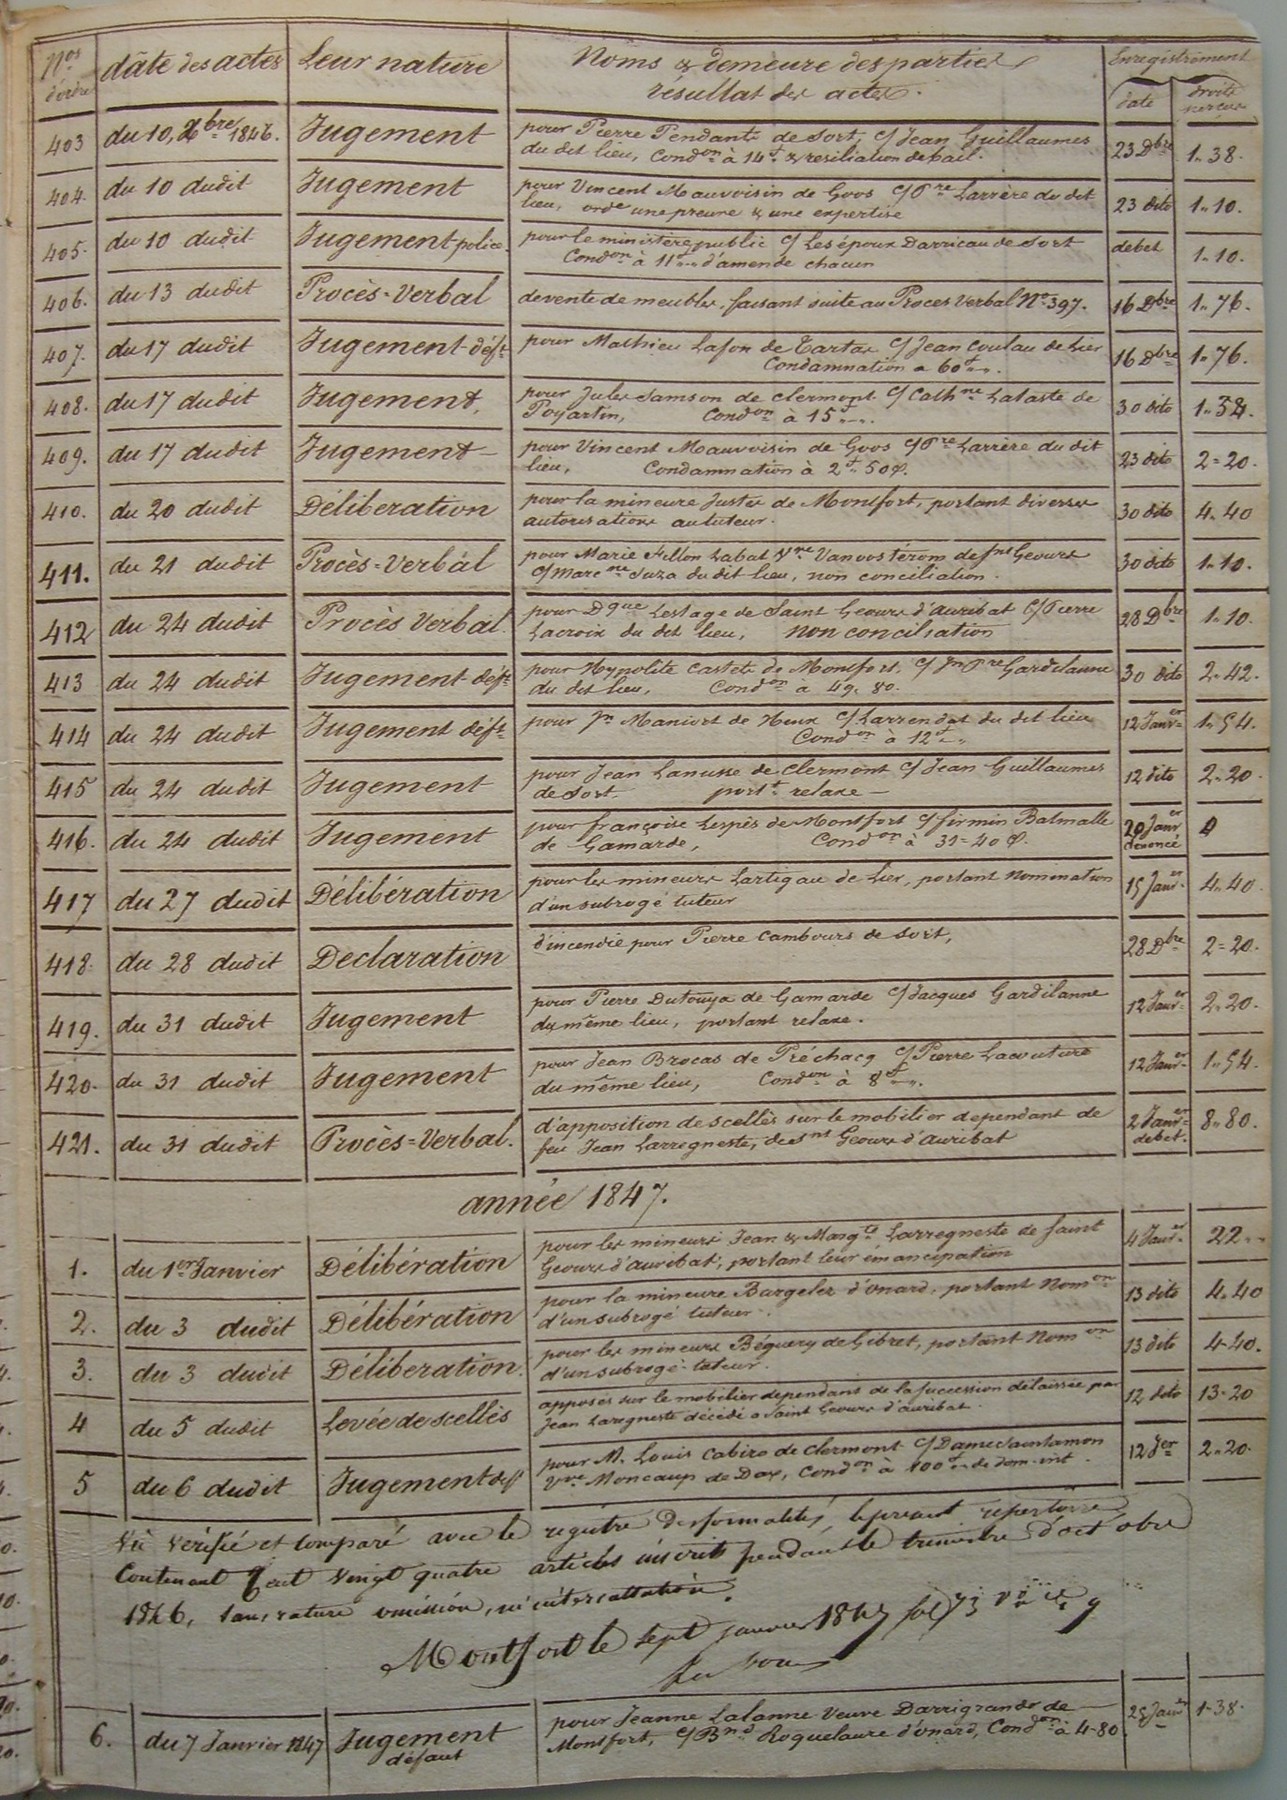 Nos d'ordre | dâte des actes | Leur nature | Noms & demeure des parties | Enregistrement
résultat des actes. | date | droits perçus
403 | du 10, Xbre 1846. | Jugement | pour Pierre Pendanté de Sort, C/ Jean Guillaumes | 23 Dbre | 1.. 38.
du dit lieu, Condon à 14f & resiliation de bail.
404. | du 10 dudit | Jugement | pour Vincent Mauvoisin de Goos C/ Pre Larrère du dit | 23 dito | 1.. 10.
lieu, orde une preuve & une expertise
405. | du 10 dudit | Jugement police. | pour le ministère public C/ Les époux Darricau de Sort | debet | 1.. 10.
Condon à 11f.. d'amende chacun
406. | du 13 dudit | Procès=Verbal | de vente de meubles, faisant suite au Procès Verbal No 397. | 16 Dbre | 1.. 76.
407. | du 17 dudit | Jugement déft | pour Mathieu Lafon de Tartas C/ Jean Coulau de Lier | 16 Dbre | 1.. 76.
Condamnation a 60f...
408. | du 17 dudit | Jugement, | pour Jules Samson de Clermont C/ Cathne Lataste de | 30 dito | 1..
Poyartin, Condon à 15f...
409. | du 17 dudit | Jugement | pour Vincent Mauvoisin de Goos C/ Pre Larrère du dit | 23 dito | 2=20.
lieu, Condamnation à 2f.. 50c.
410. | du 20 dudit | Déliberation | pour la mineure Justes de Montfort, portant diverses | 30 dito | 4.. 40
autorisations au tuteur.
411. | du 21 dudit | Procès=Verbal | pour Marie Fillon Labat Vve de St Geours | 30 dito | 1.. 10.
C/ du dit lieu, non conciliation.
412 | du 24 dudit | Procès Verbal. | pour Dque Lestage de Saint Geours d'auribat C/ Pierre | 28 Dbre | 1.. 10.
Lacroix du dit lieu, non conciliation
413 | du 24 dudit | Jugement déft | pour Hypolite Castets de Montfort, C/ Jn Pre Gardilanne | 30 dito | 2.. 42.
du dit lieu, Condon à 49. 80.
414 | du 24 dudit | Jugement déft | pour Jn Maniort de Hinx C/ Larrendat du dit lieu | 12 Janver | 1.. 54.
Condon à 12f..
415 | du 24 dudit | Jugement | pour Jean Lanusse de Clermont C/ Jean Guillaumes | 12 dito | 2.. 20.
de Sort portt relaxe
416. | du 24 dudit | Jugement | pour françoise Lespès de Montfort C/ firmin Batmalle | 20 Janver | 0
de Gamarde, Condon à 31=40 c.
417 | du 27 dudit | Délibération | pour les mineurs Lartigau de Lier, portant nomination | 15 Janver | 4.. 40.
d'un subrogé tuteur
418. | du 28 dudit | Declaration | d'incendie pour Pierre Cambours de Sort, | 28 Dbre | 2=20.
419. | du 31 dudit | Jugement | pour Pierre Dutouya de Gamarde C/ Jacques Gardilanne | 12 Janver | 2.. 20.
du même lieu, portant relaxe.
420. | du 31 dudit | Jugement | pour Jean Brocas de Préchacq C/ Pierre Lacouture | 12 Janver | 1.. 54.
du même lieu, Condon à 8f...
421. | du 31 dudit | Procès=Verbal. | d'apposition de scellés sur le mobilier dependant de | 2 Janver debet. | 8.. 80.
feu Jean Larregneste, de St Geours d'auribat
année 1847.
1. | du 1er Janvier | Délibération | pour les mineurs Jean & Margte Larregneste de Saint | 4 Janver | 22..
Geours d'auribat, portant leur émancipation
2. | du 3 dudit | Délibération | pour la mineure Bargeles d'onard, portant Nomon | 13 dito | 4.. 40
d'un subrogé tuteur.
3. | du 3 dudit | Déliberation. | pour les mineurs Béguery de Gibret, portant Nomon | 13 dito | 4-40.
d'un subrogé-tuteur.
4 | du 5 dudit | Levée de scellés | apposés sur le mobilier dependant de la succession délaissée par | 12 dito | 13-20
Jean Laregneste décédé a Saint Geours d'auribat.
5 | du 6 dudit | Jugement deft | pour M. Louis Cabiro de Clermont C/ Dame Saintamon | 12 Jer | 2.. 20.
Vve Moncaup de Dax, Condon à 100f.. de dom. int.
Vû vérifié et comparé avec le régistre des formalités, le présent répertoire
Contenant Cent vingt quatre articles inscrits pendant le trimestre d'octobre
1846, sans rature omission, ni intercallation.
Montfort le sept janvier 1847 fol 73
6. | du 7 Janvier 1847 | Jugement défaut | pour Jeanne Lalanne Veuve Darrigrand de | 25 Janver | 1-38.
Montfort, C/ Bnd Roquelaure d'onard, Condon à 4-80